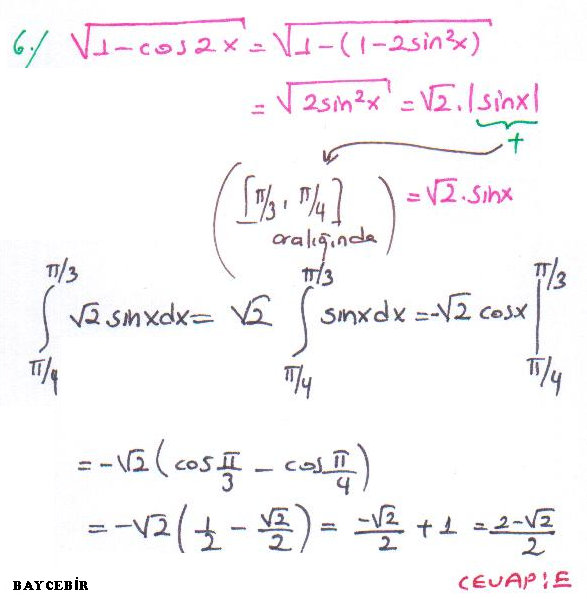 6./ √(1-cos2x) = √(1-(1-2sin²x))
= √(2sin²x) = √2.|sinx|
+
([π/3, π/4] aralığında) = √2.sinx
∫_{π/4}^{π/3} √2 sinxdx = √2 ∫_{π/4}^{π/3} sinxdx = -√2 cosx |_{π/4}^{π/3}
= -√2 (cos π/3 - cos π/4)
= -√2 (1/2 - √2/2) = -√2/2 + 1 = (2-√2)/2
CEVAP: E
BAYCEBİR